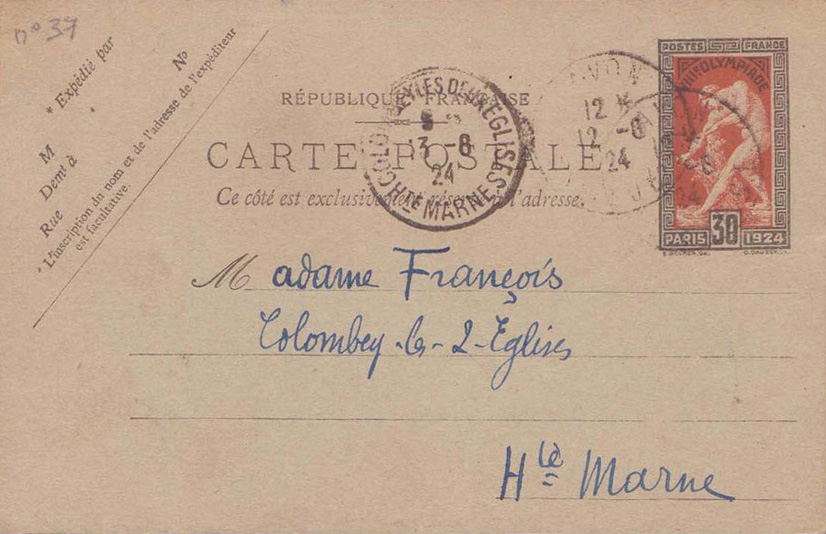 n° 37
* Expédié par
N°
M
Demt à
Rue
* L'inscription du nom et de l'adresse de l'expéditeur
est facultative.
RÉPUBLIQUE FRANÇAISE
CARTE POSTALE
Ce côté est exclusivement réservé à l'adresse.
COLOMBEY LES DEUX EGLISES
13 -6
24
HTE MARNE
12
12 -6
24
POSTES FRANCE
VIIIE OLYMPIADE
PARIS 30 1924
Madame François
Colombey-les-2-Eglises
Hte Marne